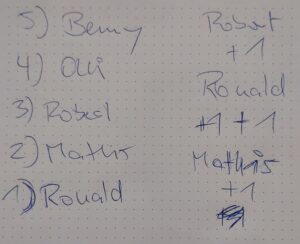 5) Benny
4) Olli
3) Robert
2) Mathis
1) Ronald
Robert
+1
Ronald
+1 +1
Mathis
+1